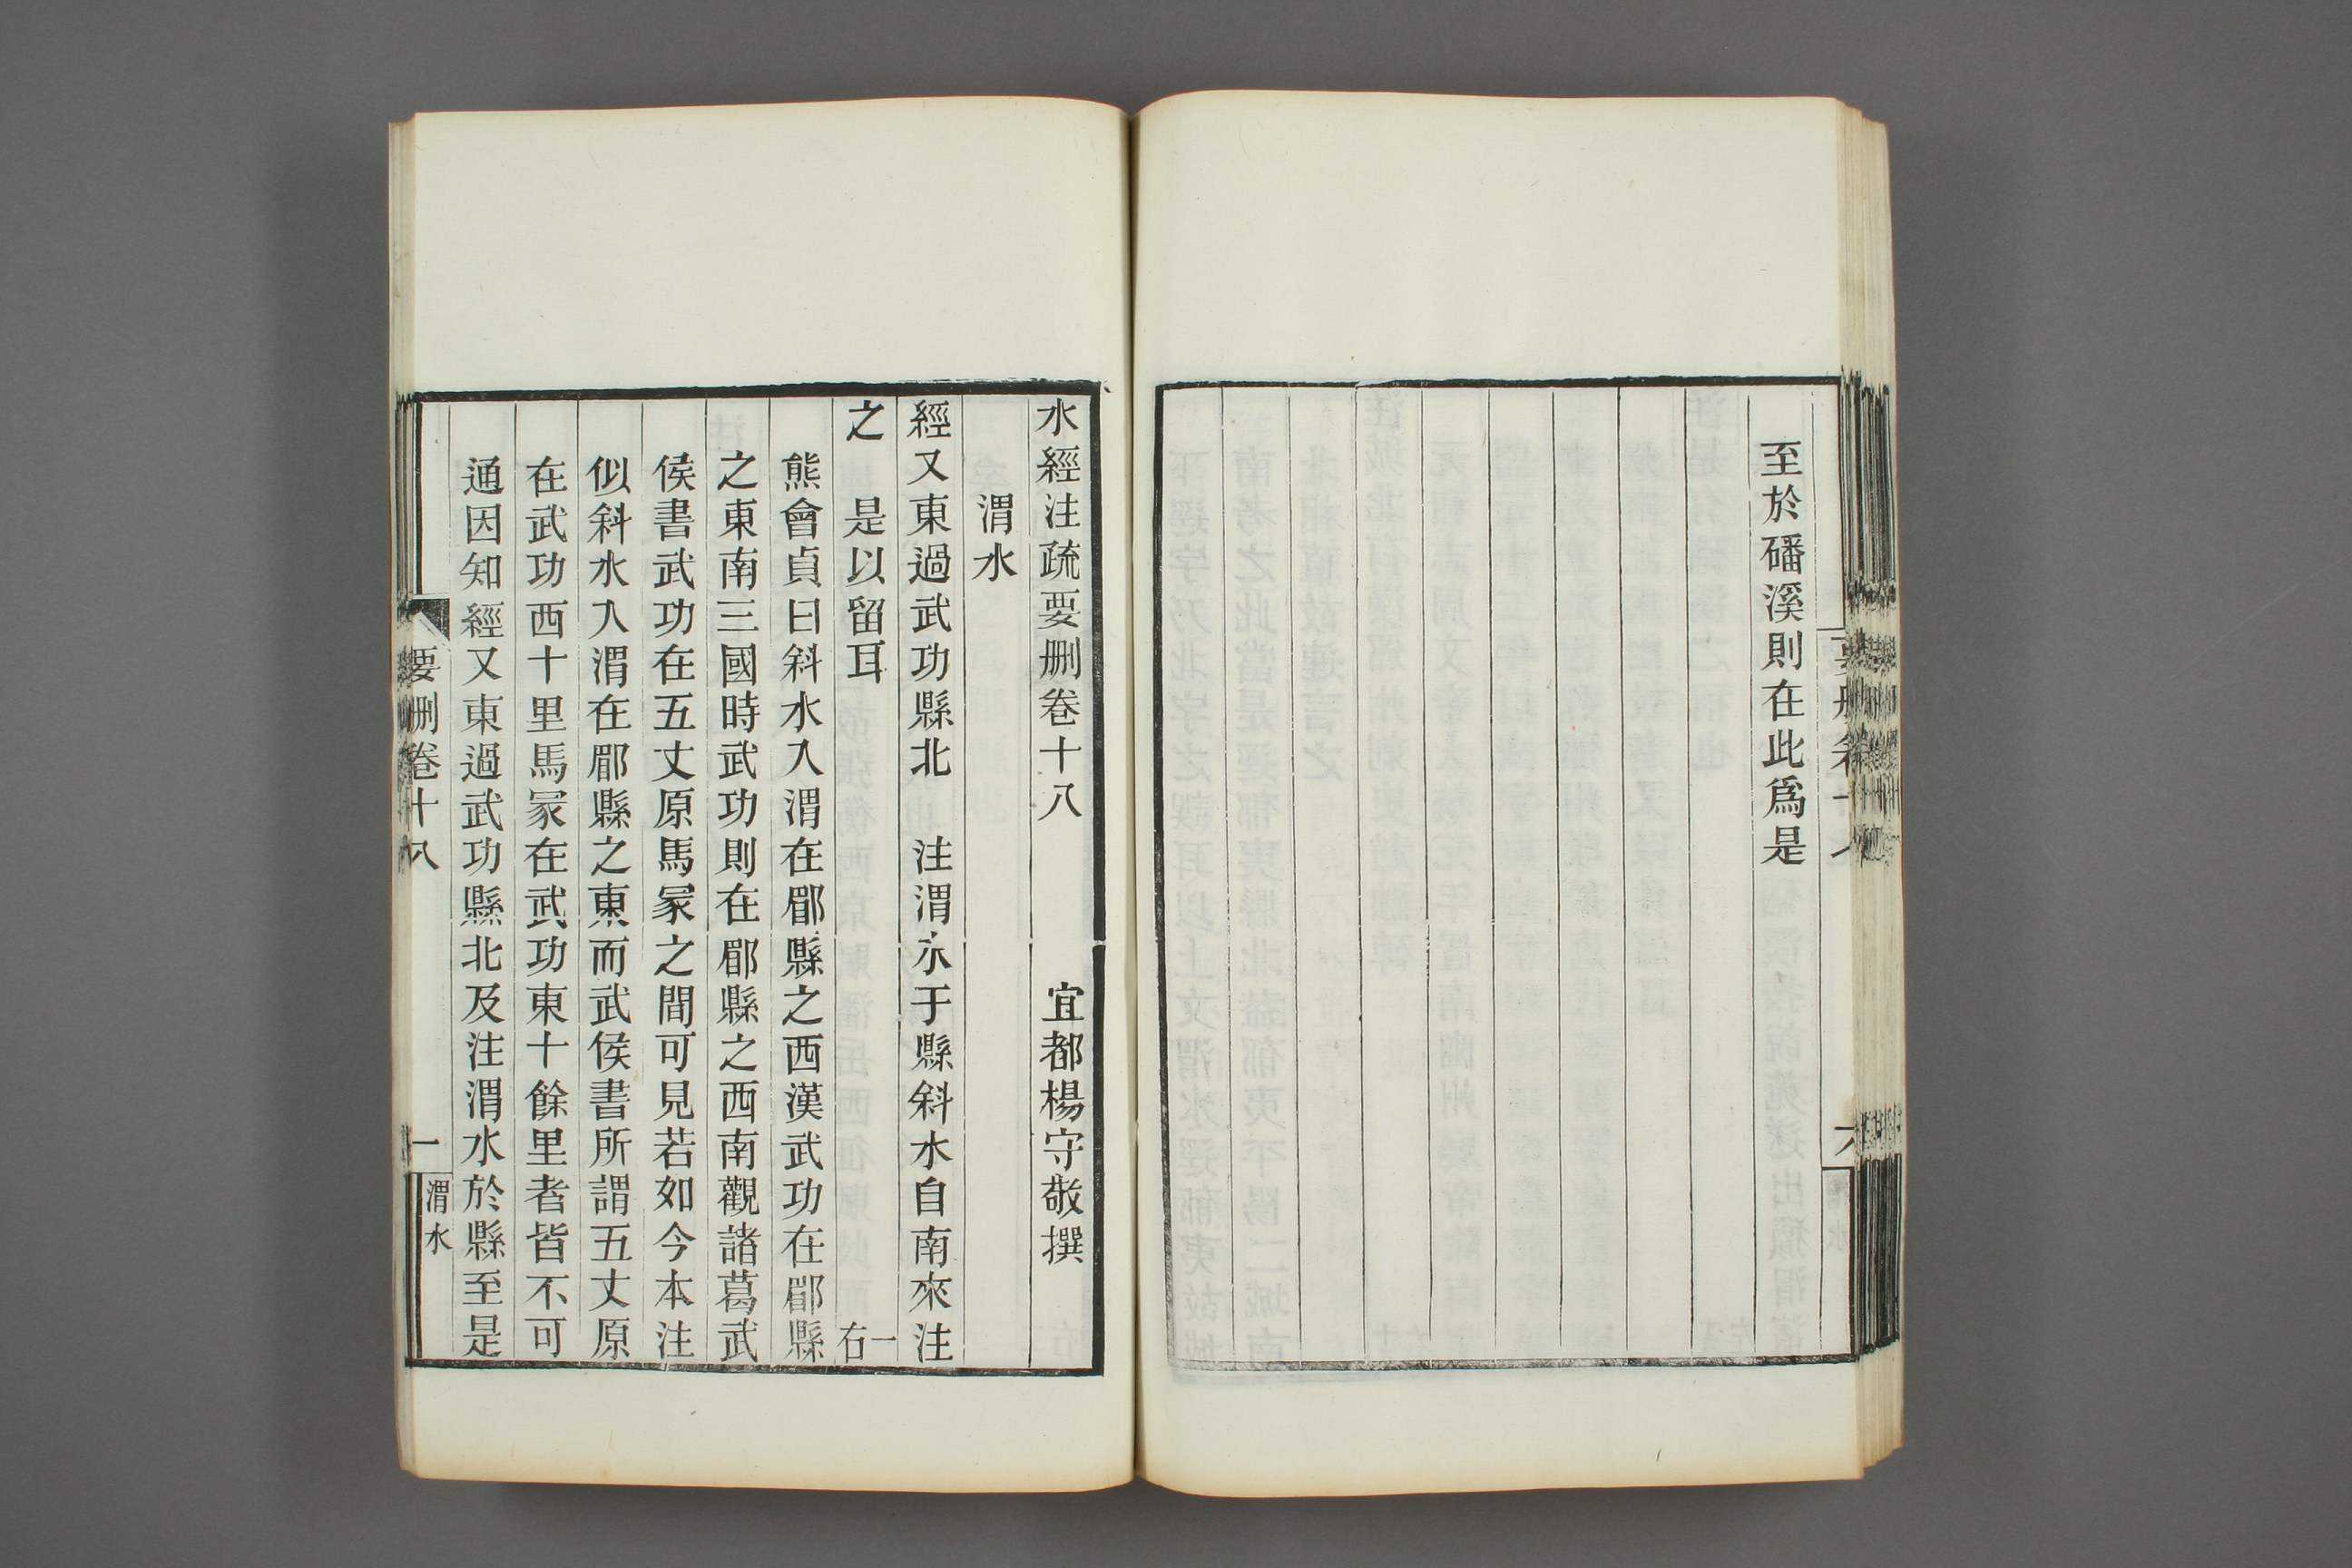 至於磻溪則在此爲是
水經注疏要刪卷十八　宜都楊守敬撰
渭水
經又東過武功縣北　注渭水于縣斜水自南來注
之　是以留耳　一右
熊會貞曰斜水入渭在郿縣之西漢武功在郿縣
之東南三國時武功則在郿縣之西南觀諸葛武
侯書武功在五丈原馬冢之間可見若如今本注
似斜水入渭在郿縣之東而武侯書所謂五丈原
在武功西十里馬冢在武功東十餘里者皆不可
通因知經又東過武功縣北及注渭水於縣至是
要刪卷十八　一　渭水